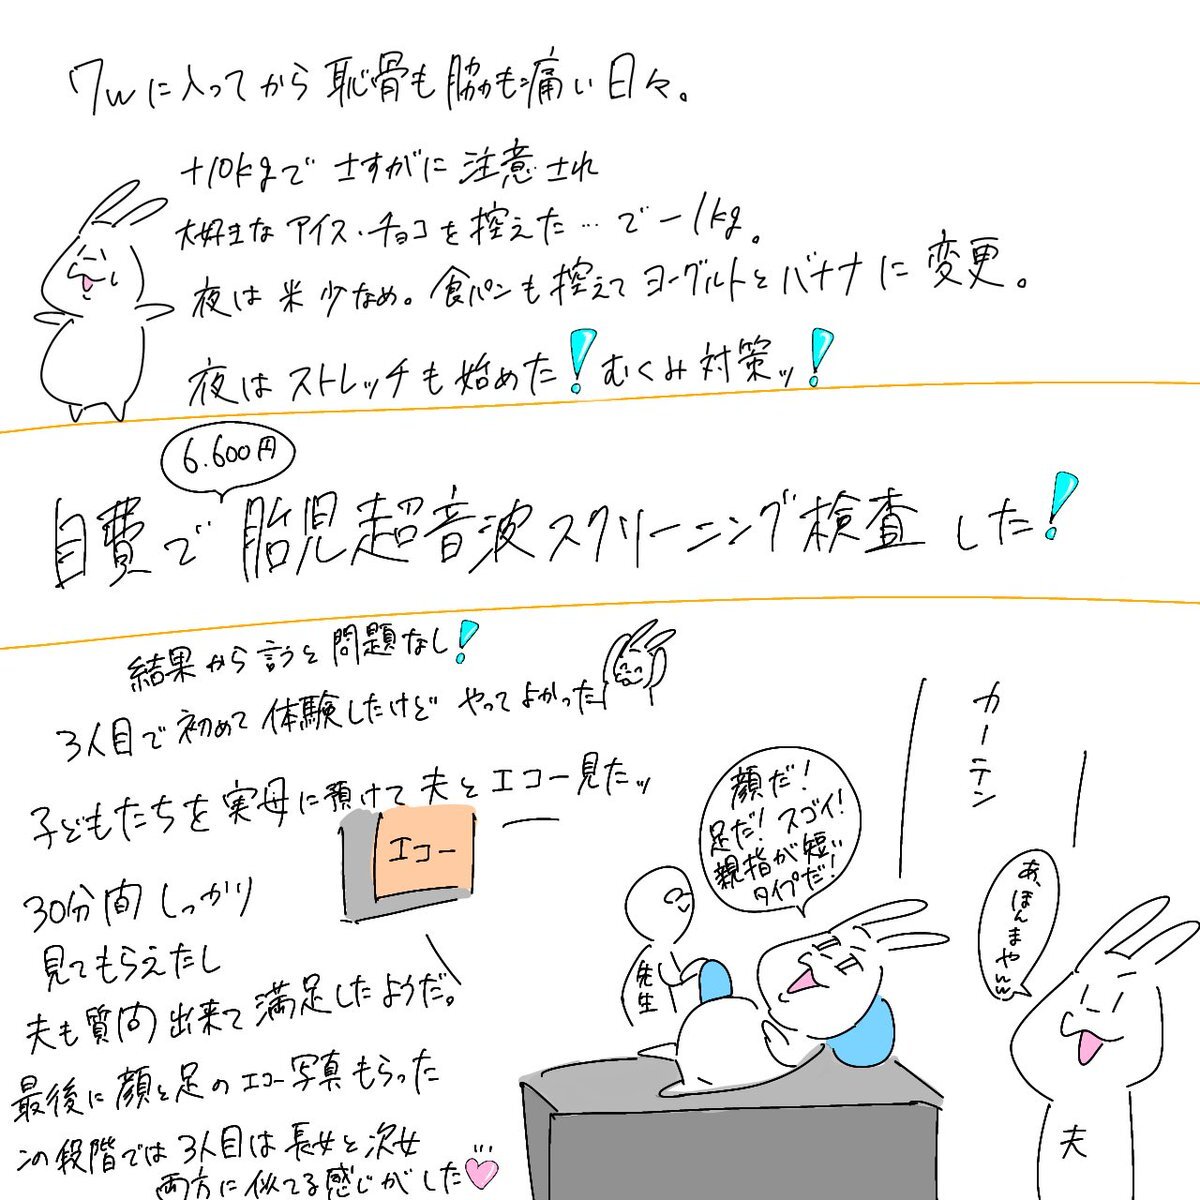 7wに入ってから恥骨も脇も痛い日々。
+10kgで さすがに 注意され
大好きな アイス・チョコを控えた…で-1kg。
夜は 米 少なめ。食パンも 控えて ヨーグルトと バナナに 変更。
夜は ストレッチも 始めた!むくみ対策ッ!
6.600円
自費で胎児超音波スクリーニング検査した!
結果から言うと問題なし!
3人目で初めて体験したけど やってよかった
子どもたちを実母に預けて夫とエコー見たッ
エコー
30分間しっかり
見てもらえたし
夫も質問出来て満足したようだ。
最後に顔と足のエコー写真もらった
この段階では3人目は長女と次女
両方に似てる感じがした
カーテン
顔だ!
足だ!スゴイ!
親指が短い
タイプだ!
先生
あ、ほんまやww
夫